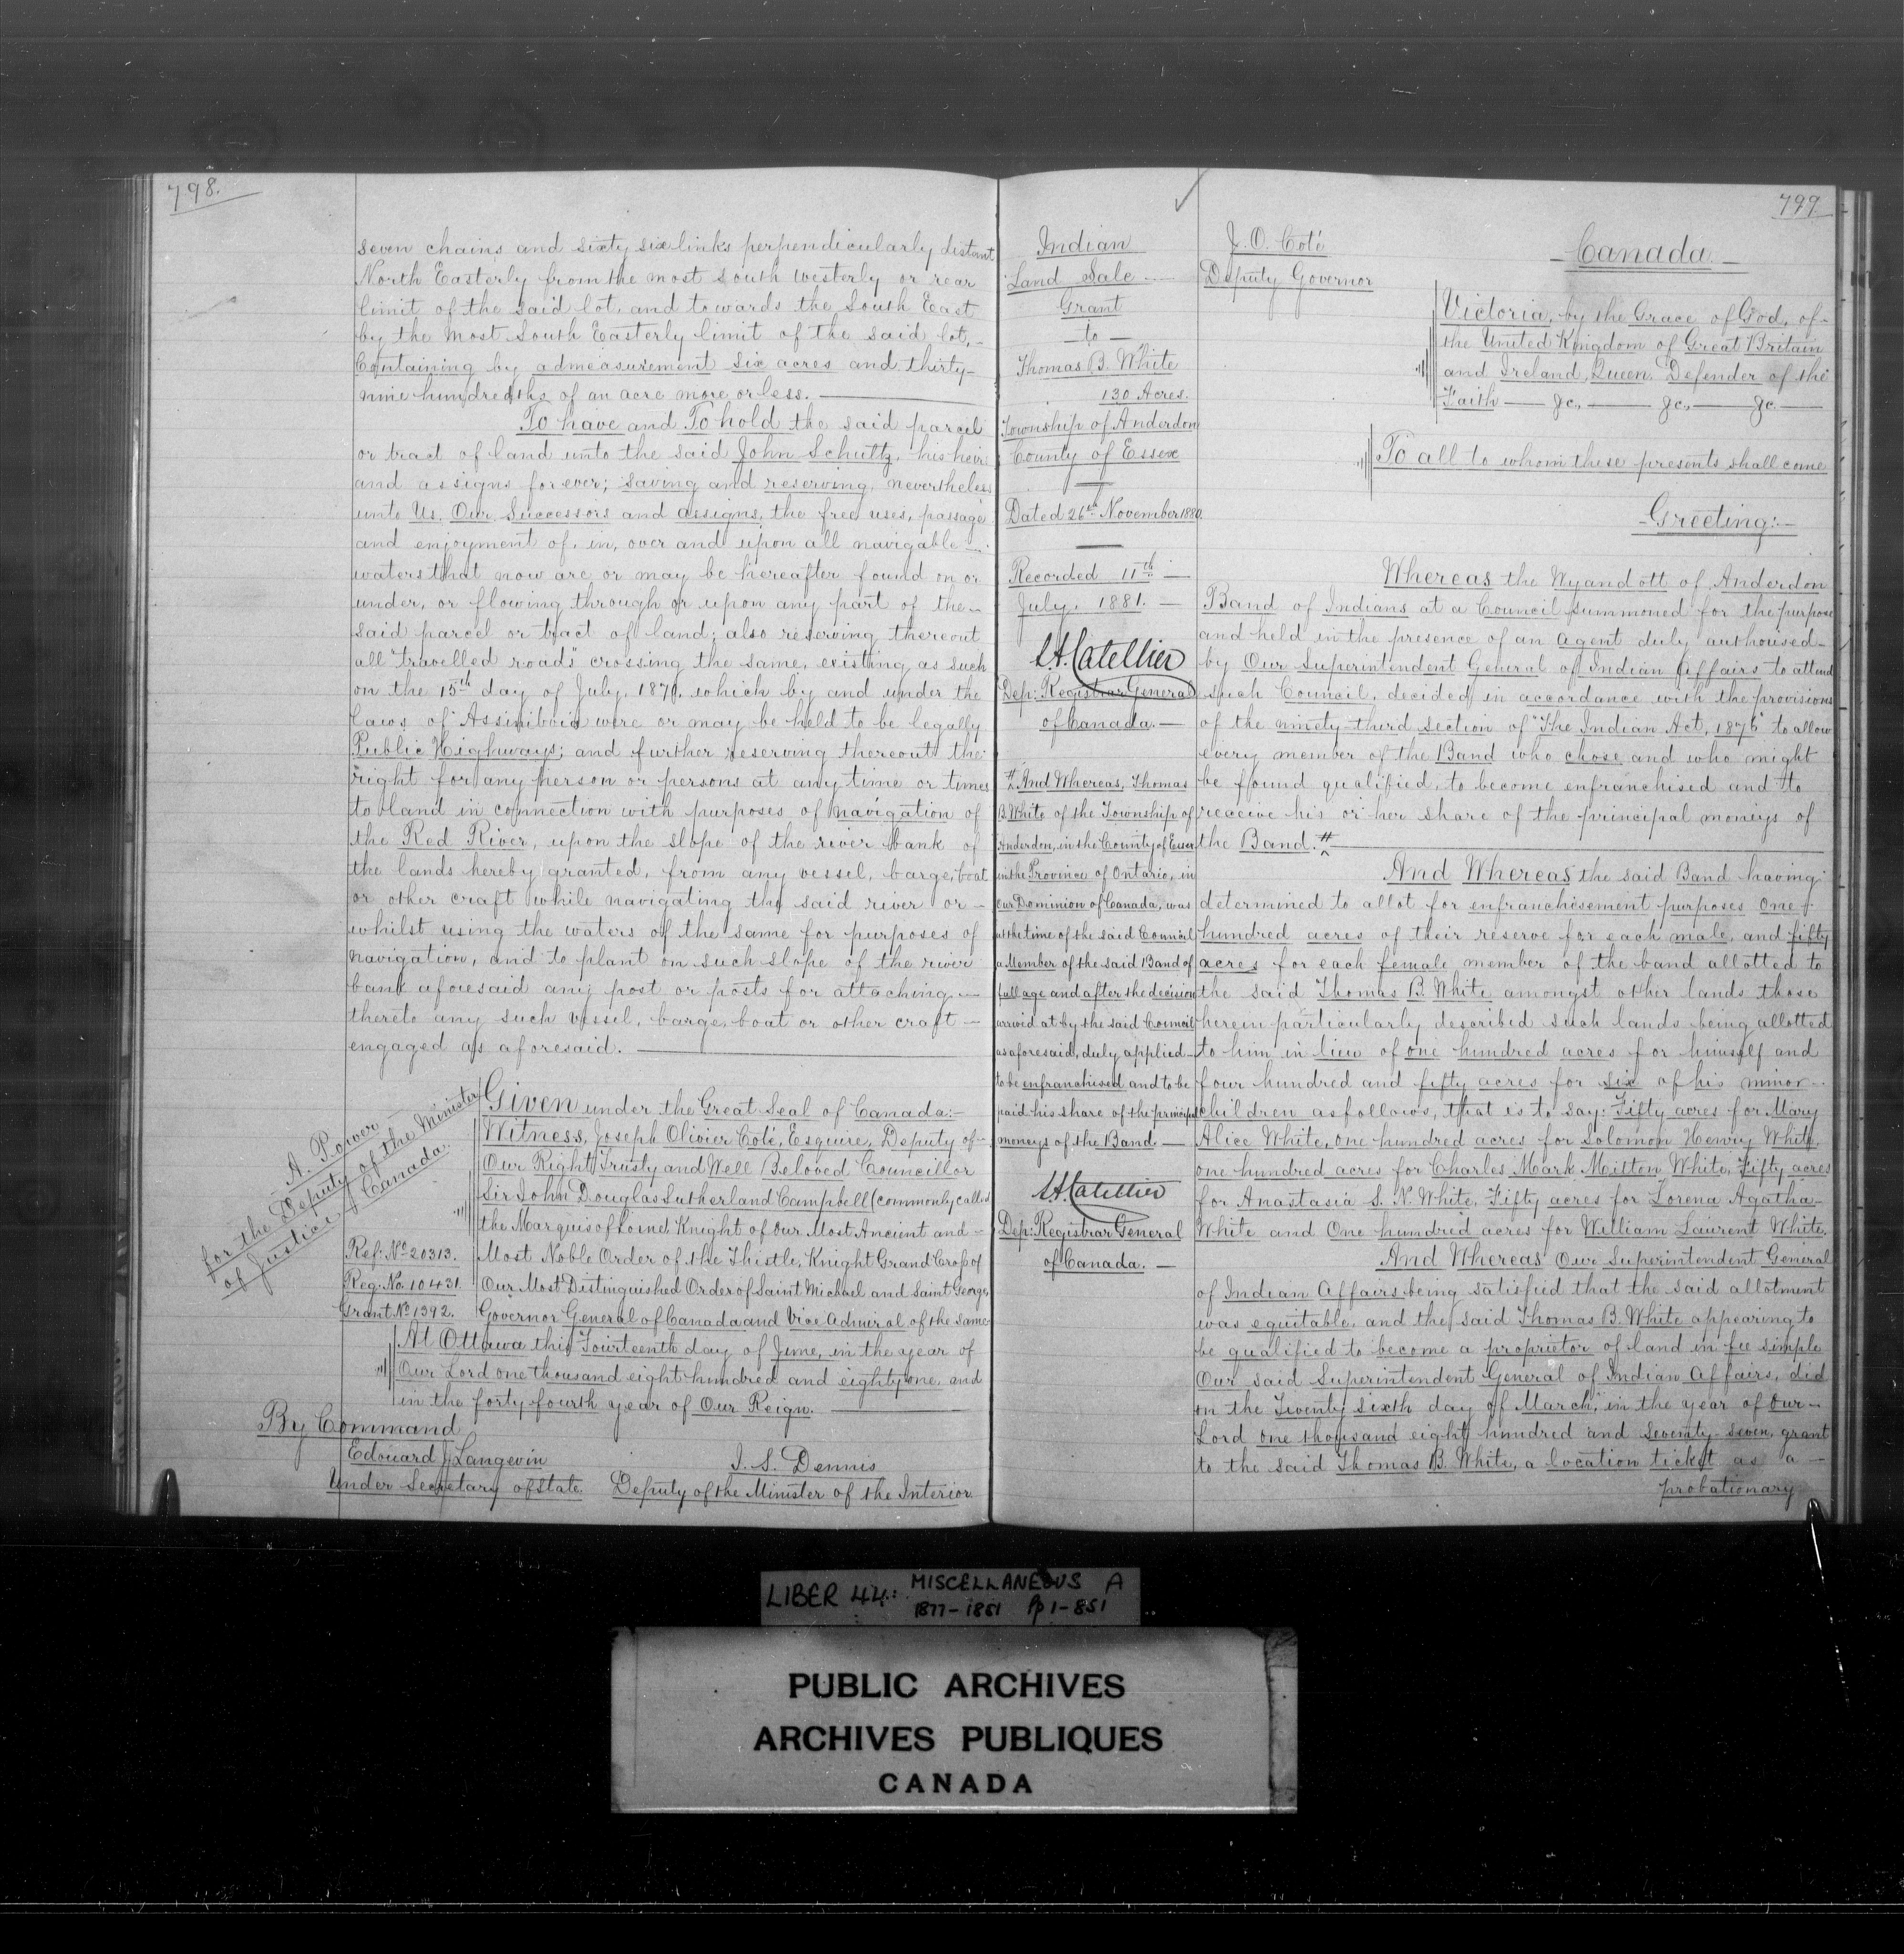 798.
seven chains and sixty six links perpendicularly distant
North Easterly from the most South Westerly or rear
limit of the said lot, and towards the South East
by the Most South Easterly limit of the said lot,-
Containing by admeasurement six acres and thirty-
nine hundredths of an acre more or less.
To have and To hold the said parcel
or tract of land unto the said John Schultz, his heirs
and assigns forever; saving and reserving, nevertheless
unto Us, Our Successors and assigns, the free uses, passage
and enjoyment of, in, over and upon all navigable
waters that now are or may be hereafter found on or
under, or flowing through or upon any part of the-
said parcel or tract of land; also reserving thereout
all "travelled roads" crossing the same, existing as such
on the 15th day of July, 1870, which by and under the
laws of Assiniboia were or may be held to be legally
Public Highways; and further reserving thereout the
right for any person or persons at any time or times
to land in connection with purposes of navigation of
the Red River, upon the slope of the river bank of
the lands hereby granted, from any vessel, barge, boat
or other craft while navigating the said river or-
whilst using the waters of the same for purposes of
navigation, and to plant on such slope of the river
bank aforesaid any post or posts for attaching-
thereto any such vessel, barge, boat or other craft-
engaged as aforesaid.
A. Power
for the Deputy of the Minister
of Justice, Canada.
Given under the Great Seal of Canada:-
Witness, Joseph Olivier Coté, Esquire, Deputy of-
Our Right Trusty and Well Beloved Councillor
Sir John Douglas Sutherland Campbell (commonly called
the Marquis of Lorne) Knight of Our Most Ancient and-
Most Noble Order of the Thistle, Knight Grand Cross of
Our Most Distinguished Order of Saint Michael and Saint George,
Governor General of Canada and Vice Admiral of the same
Ref: No 20313.
Reg: No. 10431.
Grant No 1392.
At Ottawa this Fourteenth day of June, in the year of
Our Lord one thousand eight hundred and eighty one, and
in the forty fourth year of Our Reign.
By Command
Edouard J Langevin
Under Secretary of State.
J. S. Dennis
Deputy of the Minister of the Interior
799
Indian
Land Sale
Grant
- to -
Thomas B. White
130 Acres.
Township of Anderdon
County of Essex
Dated 26th November 1880.
Recorded 11th
July, 1881.
L.A. Catellier
Dep: Registrar General
of Canada.
# And Whereas, Thomas
B. White of the Township of
Anderdon, in the County of Essex
in the Province of Ontario, in
Our Dominion of Canada, was
at the time of the said Council
a Member of the said Band of
full age and after the decision
arrived at by the said Council
as aforesaid, duly applied-
to be enfranchised and to be
paid his share of the principal
moneys of the Band.
L.A. Catellier
Dep: Registrar General
of Canada.
J. O. Coté
Deputy Governor
- Canada -
Victoria, by the Grace of God, of-
the United Kingdom of Great Britain
and Ireland, Queen, Defender of the
Faith &c, &c, &c
To all to whom these presents shall come
- Greeting:-
Whereas the Wyandott of Anderdon
Band of Indians at a Council summoned for the purpose
and held in the presence of an agent duly authorised-
by Our Superintendent General of Indian Affairs to attend
such Council, decided in accordance with the provisions
of the ninety-third section of "The Indian Act, 1876" to allow
every member of the Band who chose and who might
be found qualified, to become enfranchised and to
receive his or her share of the principal moneys of
the Band. #
And Whereas the said Band having
determined to allot for enfranchisement purposes One-
hundred acres of their reserve for each male, and fifty
acres for each female member of the band allotted to
the said Thomas B. White amongst other lands those
herein particularly described such lands being allotted
to him in lieu of one hundred acres for himself and
four hundred and fifty acres for six of his minor-
children as follows, that is to say: Fifty acres for Mary
Alice White, one hundred acres for Solomon Henry White,
one hundred acres for Charles Mark Milton White, Fifty acres
for Anastasia S. N. White, Fifty acres for Lorena Agatha-
White and One hundred acres for William Laurent White.
And Whereas Our Superintendent General
of Indian Affairs being satisfied that the said allotment
was equitable, and the said Thomas B. White appearing to
be qualified to become a proprietor of land in fee simple
Our said Superintendent General of Indian Affairs, did
on the Twenty sixth day of March, in the year of Our-
Lord one thousand eight hundred and seventy-seven, grant
to the said Thomas B. White, a location ticket as a-
probationary
LIBER 44: MISCELLANEOUS A
1877-1881 Pp 1-851
PUBLIC ARCHIVES
ARCHIVES PUBLIQUES
CANADA